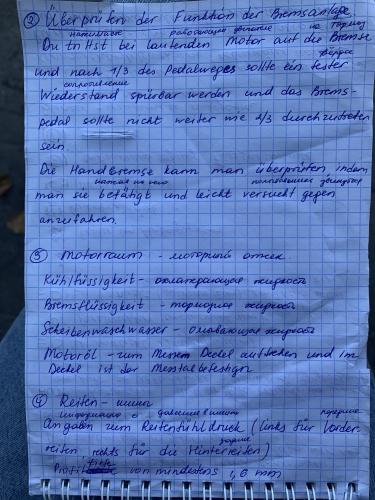 ② Überprüfen der Funktion der Bremsanlage
нажимаете работающий двигатель на тормоз
Du trittst bei laufenden Motor auf die Bremse
твёрдое
und nach 1/3 des Pedalweges sollte ein fester
сопротивление
Wiederstand spürbar werden und das Brems-
pedal sollte nicht weiter wie 2/3 durchzutreten
sein.
Die Handbremse kann man überprüfen indem
man sie betätigt und leicht versucht gegen
anzufahren.
③ Motorraum - моторный отсек
Kühlflüssigkeit - охлаждающая жидкость
Bremsflüssigkeit - тормозная жидкость
Scheibenwaschwasser - омывающая жидкость
Motoröl - zum Messen Deckel aufdrehen und im
Deckel ist der Messstab befestigt.
④ Reifen - шины
информация о давлении в шинах передние
Angaben zum Reifenfühldruck (links für Vorder-
задние
reifen, rechts für die Hinterreifen)
Profiltiefe von mindestens 1,6 mm